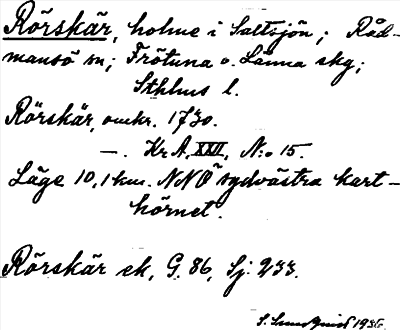 Rörskär, holme i Saltsjön; Råd-
mansö sn; Frötuna o. Länna skg;
Sthlms l.
Rörskär, omkr. 1730.
—. Kr A, XXVI, N:o 15.
Läge 10,1 km. NNO sydvästra kart-
hörnet.
Rörskär ek, G. 86, Sj. 233.
1936.